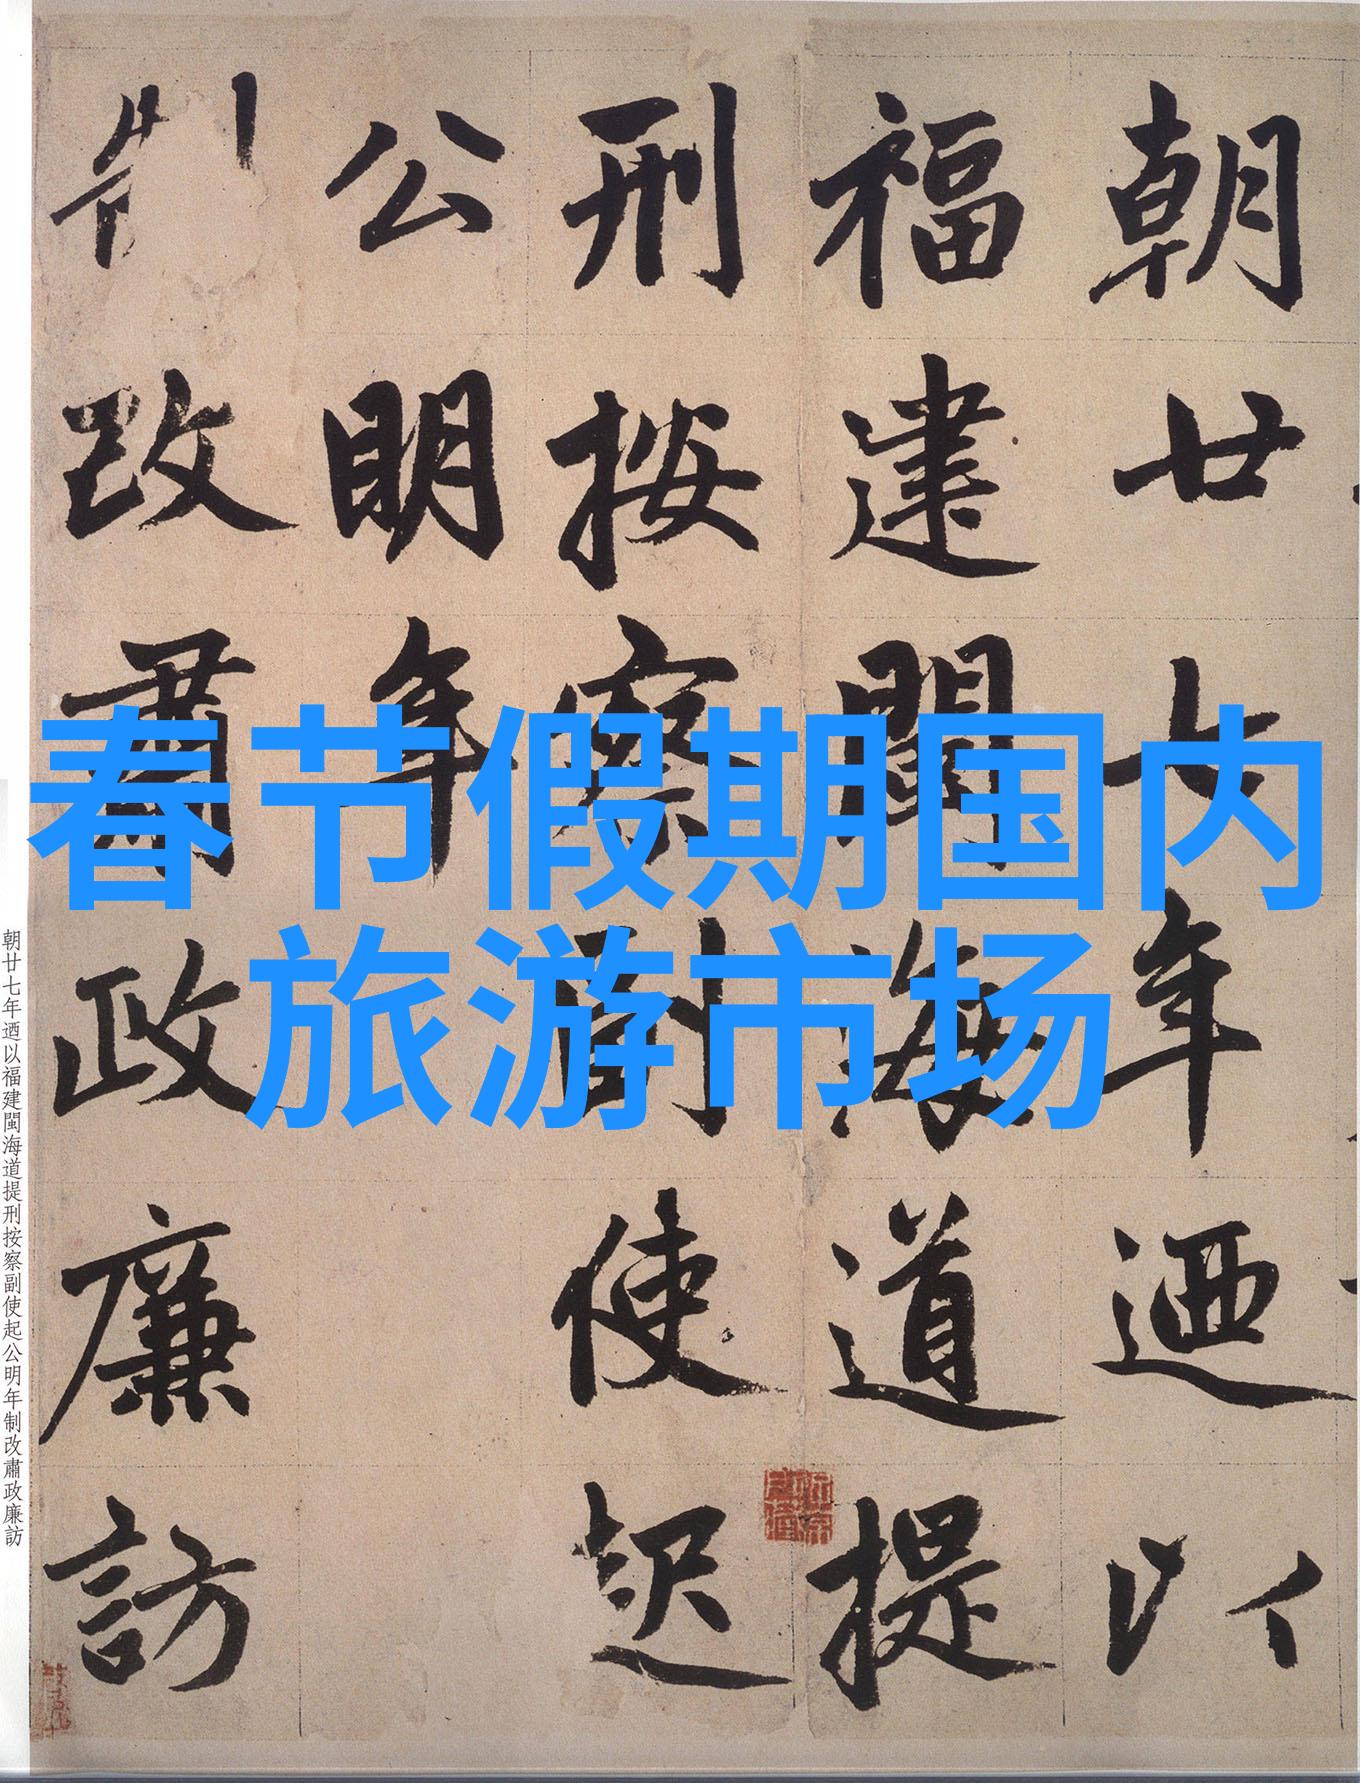 朝廿七年迺以
福建閩海道提
刑按察副使起
公明年
制改肅政廉訪
春节假期国内
旅游市场
朝廿七年迺以福建閩海道提刑按察副使起公明年制改肅政廉訪